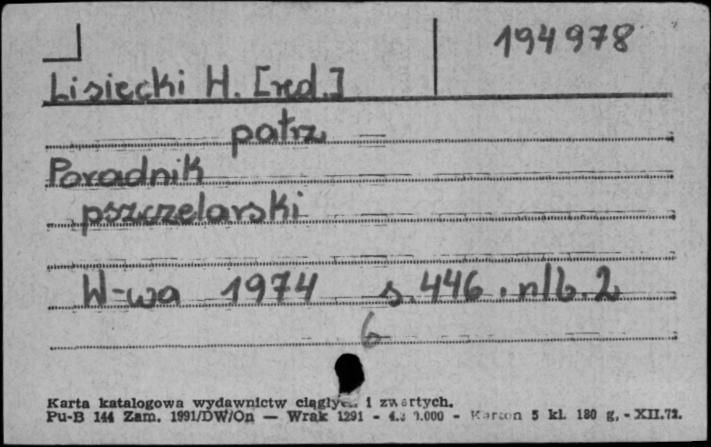 194978
Lisiecki H. [red.]
patrz
Poradnik
pszczelarski
W-wa 1974 s. 446. nlb. 2
6
Karta katalogowa wydawnictw i zwartych.
Pu-B 144 Zam. 1991/DW/On — Wrak 1291 - Karton 5 kl. 180 g. - XII.72.